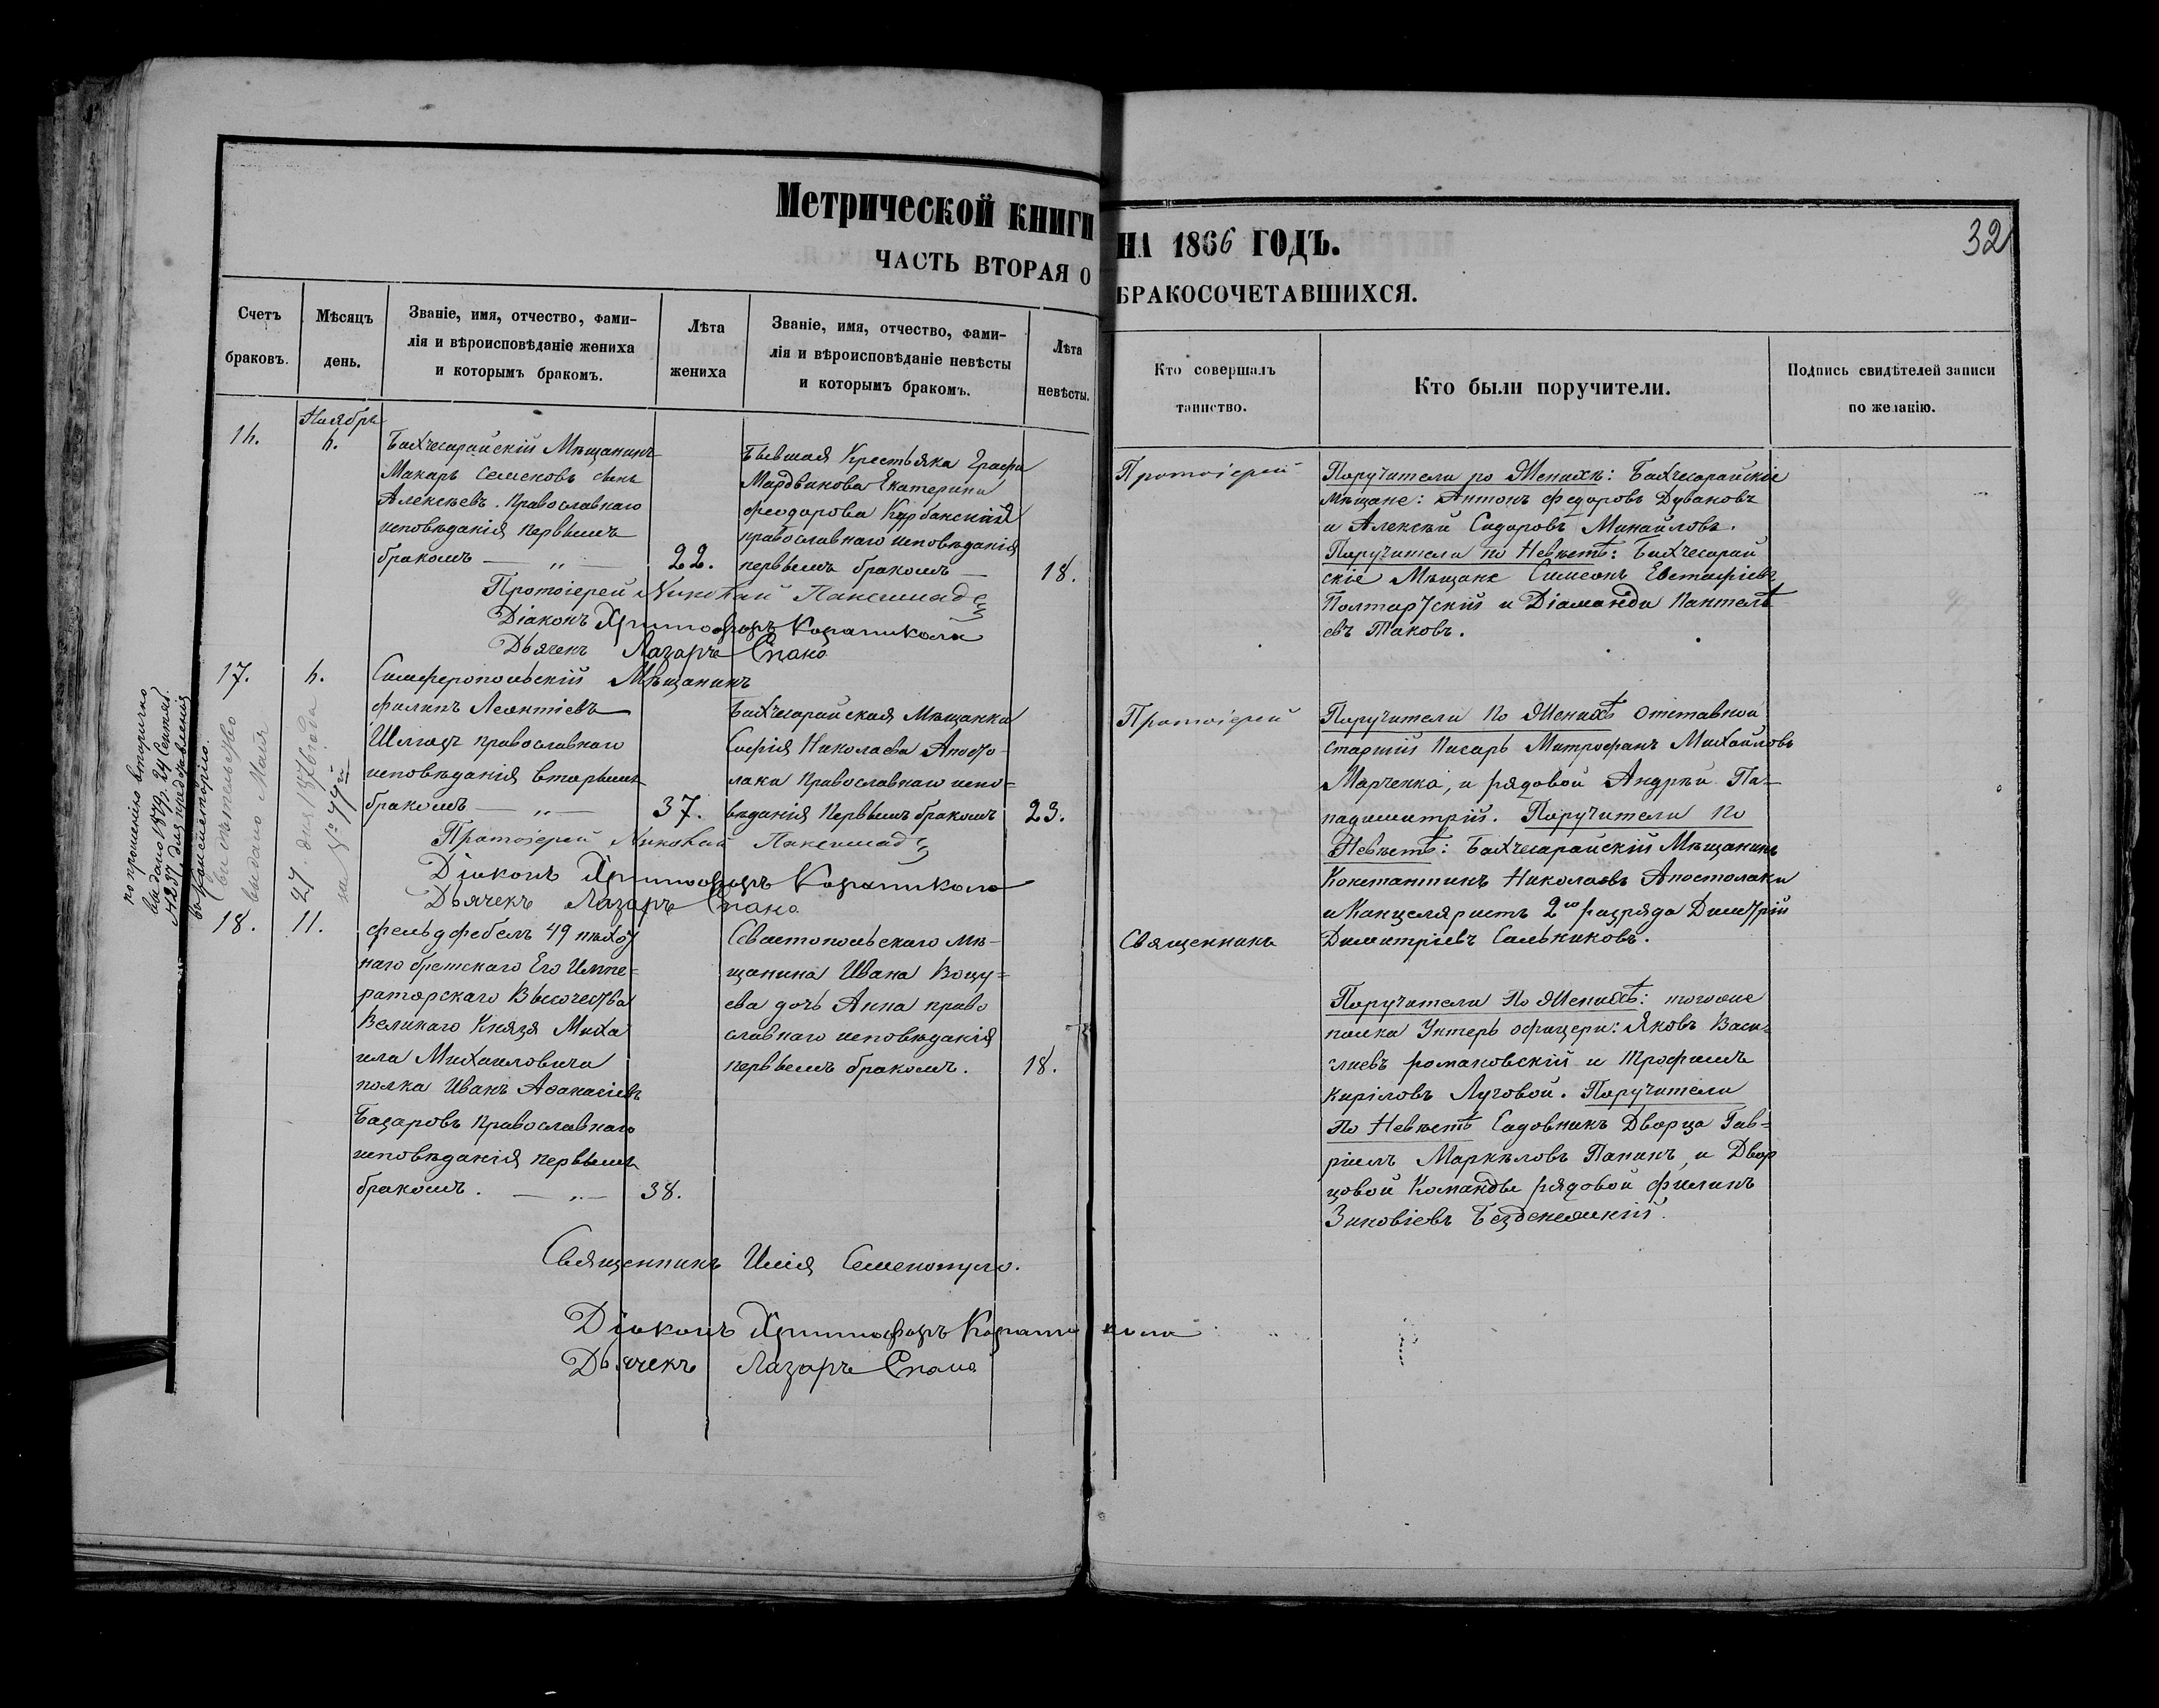 Метрической книги
ЧАСТЬ ВТОРАЯ О
НА 1866 ГОДЪ.
32
БРАКОСОЧЕТАВШИХСЯ.
Счетъ
браковъ.
Мѣсяцъ
день.
Званіе, имя, отчество, фами-
лія и вѣроисповѣданіе жениха
и которымъ бракомъ.
Лѣта
жениха
Званіе, имя, отчество, фами-
лія и вѣроисповѣданіе невѣсты
и которымъ бракомъ.
Лѣта
невѣсты.
Кто совершалъ
таинство.
Кто были поручители.
Подпись свидѣтелей записи
по желанію.
Ноябрь
16.
6.
Бахчисарайскій Мѣщанинъ
Макаръ Семеновъ сынъ
Алексѣевъ. православнаго
исповѣданія первымъ
бракомъ — „ —
22.
Бывшая Крестьяка Графа
Мардвинова Екатерина
Феодорова
православнаго исповѣданія
первымъ бракомъ —
18.
Протоіерей
Поручители по Женихѣ: Бахчисарайскіе
мѣщане: Антонъ Федоровъ Дувановъ
и Алексѣй Сидоровъ Минайловъ.
Поручители по Невѣстѣ: Бахчисарай
скіе Мѣщане Симеонъ Евстафіевъ
Полтарускій и Діаманди Пантелѣ
евъ Таковъ.
Протоіерей Николай
Діаконъ Христофоръ Кораниколи
Дьячекъ Лазарь Спано
17.
6.
Симферопольскій Мѣщанинъ
Филипъ Леонтіевъ
православнаго
исповѣданія вторымъ
бракомъ — „ —
37.
Бахчисарайская Мѣщанка
Софія Николаева Апосто-
лаки православнаго испо-
вѣданія первымъ бракомъ
23.
Протоіерей
Поручители по Женихѣ отставной
старшій писарь Митрофанъ Михайловъ
Марченко, и рядовой Андрѣй Па-
падимитрій. Поручители по
Невѣстѣ: Бахчисарайскій Мѣщанинъ
Константинъ Николаевъ Апостолаки
и Канцеляристъ 2го разряда Димитрій
Димитріевъ Сальниковъ.
Протоіерей Николай
Діаконъ Христофоръ Кораниколи
Дьячекъ Лазарь Спано
по прошенію вторично
выдано 1879 г. 24 Сентяб.
№ 237 для представленія
въ Консисторію.
Свидѣтельство
выдано Мая
27. дня 1876 года
за № 77й
18.
11.
Фельдфебель 49 пѣхот
наго бретскаго Его Импе=
раторскаго Высочества
Великаго Князя Миха
ила Михаиловича
полка Иванъ Аѳанасіевъ
Базаровъ православнаго
исповѣданія первымъ
бракомъ. — „ —
38.
Севастопольскаго мѣ-
щанина Ивана
ева дочь Анна право
славнаго исповѣданія
первымъ бракомъ.
18.
Священникъ
Поручители По Женихѣ: тогоже
полка Унтеръ офицери: Яковъ Васи-
лиевъ романовскій и Трофимъ
Кириловъ Луговой. Поручители
По Невѣстѣ Садовникъ Дворца Гав=
ріилъ Маркѣловъ Панинъ, и Двор
цовой Команды рядовой Филипъ
Зиновіевъ
Священникъ Илія Семенопуло.
Діаконъ Христофоръ Кораниколи
Дьячекъ Лазарь Спано